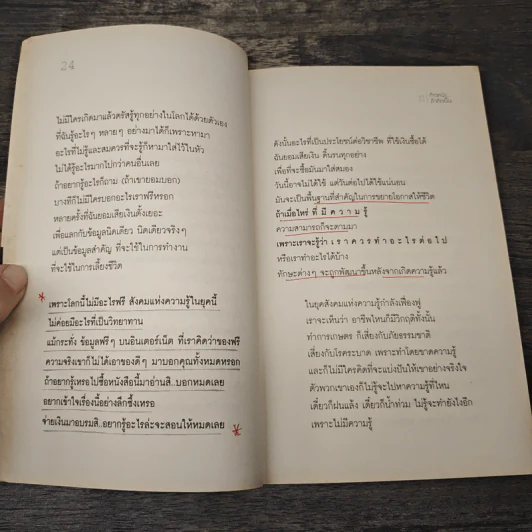 24
ไม่มีใครเกิดมาแล้วตรัสรู้ทุกอย่างในโลกได้ด้วยตัวเอง
ที่ฉันรู้อะไรๆ หลายๆ อย่างมาได้ก็เพราะหามา
อะไรที่ไม่รู้และสมควรที่จะรู้ก็หามาใส่ไว้ในหัว
ไม่ได้รู้อะไรมากไปกว่าคนอื่นเลย
ถ้าอยากรู้อะไรก็ถาม (ถ้าเขายอมบอก)
บางทีก็ไม่มีใครบอกอะไรเราฟรีหรอก
หลายครั้งที่ฉันยอมเสียเงินตั้งเยอะ
เพื่อแลกกับข้อมูลนิดเดียว นิดเดียวจริงๆ
แต่เป็นข้อมูลสำคัญ ที่จะใช้ในการทำงาน
ที่จะใช้ในการเลี้ยงชีวิต
เพราะโลกนี้ไม่มีอะไรฟรี สังคมแห่งความรู้ในยุคนี้
ไม่ค่อยมีอะไรที่เป็นวิทยาทาน
แม้กระทั่ง ข้อมูลฟรีๆ บนอินเตอร์เน็ต ที่เราคิดว่าของฟรี
ความจริงเขาก็ไม่ได้เอาของดีๆ มาบอกคุณทั้งหมดหรอก
ถ้าอยากรู้อะไรไปซื้อหนังสือนี้มาอ่านสิ..บอกหมดเลย
อยากเข้าใจเรื่องนี้อย่างลึกซึ้งเหรอ
จ่ายเงินมาอบรมสิ..อยากรู้อะไรล่ะจะสอนให้หมดเลย
ดังนั้นอะไรที่เป็นประโยชน์ต่อวิชาชีพ ที่ใช้เงินซื้อได้
ฉันยอมเสียเงิน ดิ้นรนทุกอย่าง
เพื่อที่จะซื้อมันมาใส่สมอง
วันนี้อาจไม่ได้ใช้ แต่วันต่อไปได้ใช้แน่นอน
มันจะเป็นพื้นฐานที่สำคัญในการขยายโอกาสให้ชีวิต
ถ้าเมื่อไหร่ ที่ มี ค ว า ม รู้
ความสามารถก็จะตามมา
เพราะเราจะรู้ว่า เ ร า ค ว ร ทำ อ ะ ไ ร ต่ อ ไ ป
หรือเราทำอะไรได้บ้าง
ทักษะต่างๆ จะถูกพัฒนาขึ้นหลังจากเกิดความรู้แล้ว
ในยุคสังคมแห่งความรู้กำลังเฟื่องฟู
เราจะเห็นว่า อาชีพไหนก็มีวิกฤติทั้งนั้น
ทำการเกษตร ก็เสี่ยงกับภัยธรรมชาติ
เสี่ยงกับโรคระบาด เพราะทำโดยขาดความรู้
และก็ไม่มีใครคิดที่จะแบ่งปันให้เขาอย่างจริงใจ
ตัวพวกเขาเองก็ไม่รู้จะไปหาความรู้ที่ไหน
เดี๋ยวก็ฝนแล้ง เดี๋ยวก็น้ำท่วม ไม่รู้จะทำยังไงอีก
เพราะไม่มีความรู้